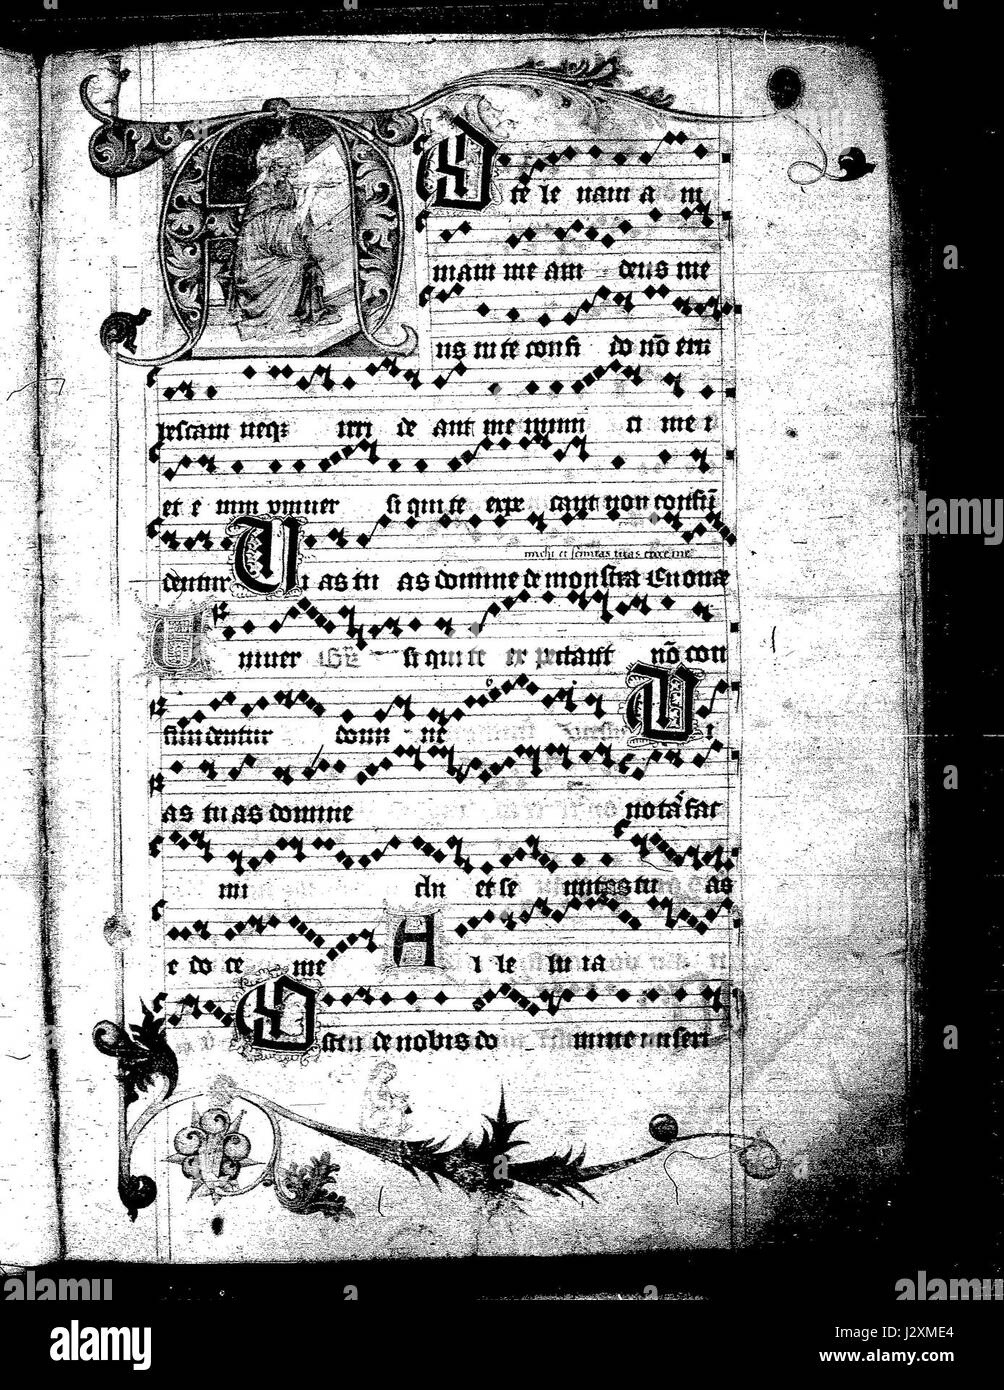 A D te le nam a ni
mam me am deus me
us in te confi do nō eru
bescam neqz irri de ant me inimi ci me i
et e nim univer si qui te expe ctant non confū
michi et semitas tuas edoce me
dentur Vi as tu as domine de monstra Euouae
U niver si qui te ex pectant nō con
fundentur domi ne V i
as tuas domine notas fac
mi chi et se mitas tu as
e do ce me A l le lu ia
O sten de nobis do mine miseri
alamy
Image ID: 2JXME4
www.alamy.com